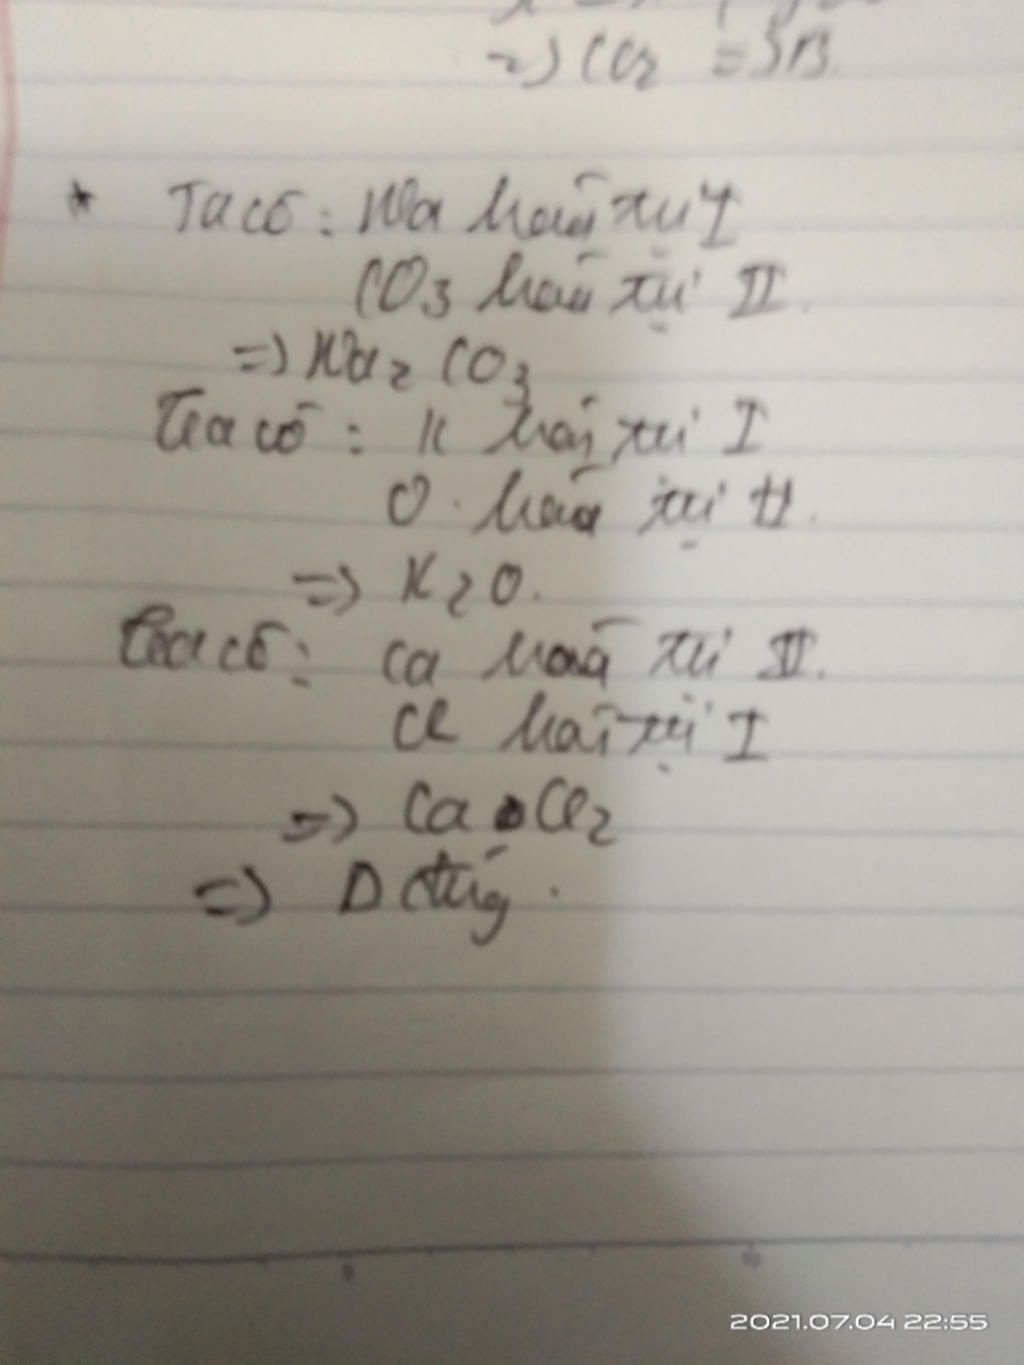 => Cl2 = 3B
* Ta có : Na hoá trị I
CO3 hoá trị II.
=> Na2CO3
Ta có : K hoá trị I
O hoá trị II.
=> K2O.
Ta có : Ca hoá trị II.
Cl hoá trị I
=> CaCl2
=> D đúng.
2021.07.04 22:55